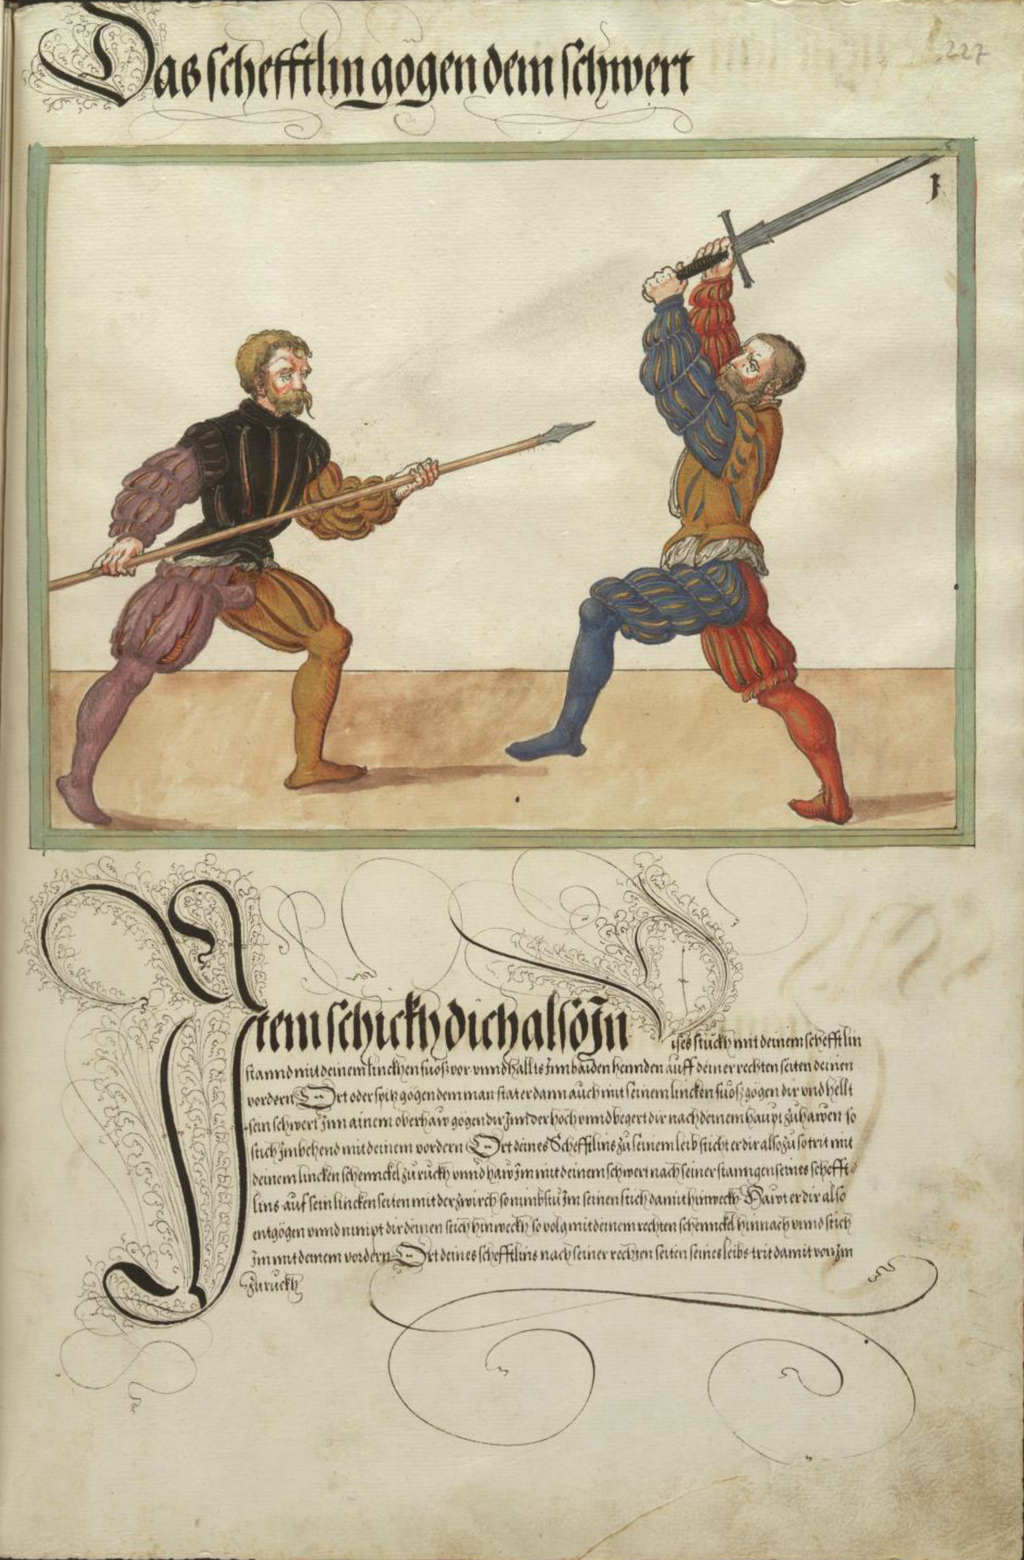 Das schefftlin gögen dem schwert
227
1
Item schickh dich also Inn
dises stuckh mit deinem schefftlin
stannd mit deinem linckhen fuoß vor unnd hallt es Inn baiden hennden auff deiner rechten seiten deinen
vordern Ort oder spitz gögen dem man stat er dann auch mit seinem lincken fuoß gögen dir und hellt
sein schwert Inn ainem oberhaw gögen dir Inn der hoch unnd begert dir nach deinem haupt zu hawen so
stich Im behend mit deinem vordern Ort deines Schefftlins zu seinem leib sticht er dir also zu so trit mit
deinem lincken schennckel zu ruckh unnd haw Im mit deinem schwert nach seiner stanngen seines schefft
lins auf sein lincken seiten mit der zwirch so nimbstu Im seinen stich damit hinweckh Hawt er dir also
entgögen unnd nimpt dir deinen stich hinweckh so volg mit deinem rechten schennckel hinnach unnd stich
Im mit deinem vordern Ort deines schefftlins nach seiner rechten seiten seines leibs trit damit von Im
zu ruckh